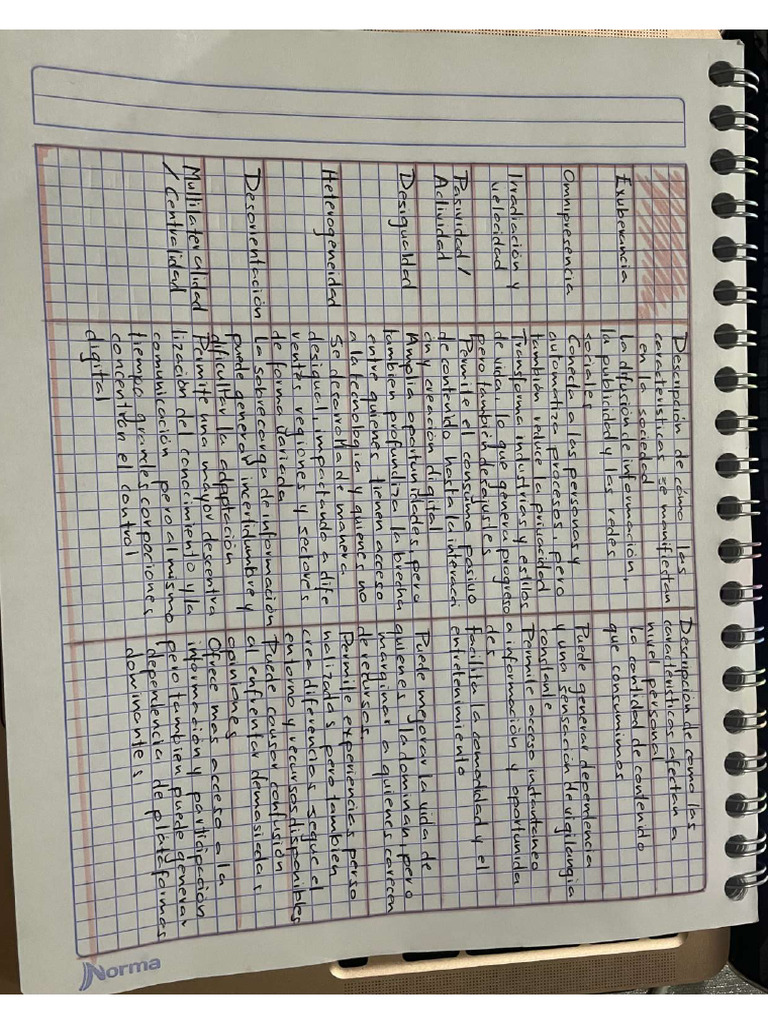 Descripción de cómo las
características se manifiestan
en la sociedad
Descripción de como las
características afectan a
nivel personal
Exuberancia
La difusión de información,
la publicidad y las redes
sociales
La cantidad de contenido
que consumimos
Omnipresencia
Conecta a las personas y
automatiza procesos, pero
también reduce la privacidad
Puede generar dependencia
y una sensación de vigilangia
constante
Irradiación y
velocidad
Transforma industrias y estilos
de vida, lo que genera progreso
pero también desajustes
Permite acceso instantaneo
a información y oportunida
des
Pasividad /
Actividad
Permite el consumo pasivo
de contenido hasta la interacci
ón y creación digital
facilita la comodidad y el
entretenimiento
Desigualdad
Amplia oportunidades, pero
tambien profundiza la brecha
entre quienes tienen acceso
a la tecnologia y quienes no
Puede mejorar la vida de
quienes la dominan, pero
marginar a quienes carecen
de recursos
Heterogeneidad
Se desarrolla de manera
desigual, impactando a dife
rentes regiones y sectores
de forma variada
Permite experiencias perso
nalizadas pero tambien
crea diferencias segue el
entorno y recursos disponibles
Desorientación
La sobrecarga de información
puede generar incertidumbre y
dificultar la adaptación
Puede causar confusión
al enfrentar demasiadas
opiniones
Multilateralidad
/ Centralidad
Permite una mayor descentra
lización del conocimiento y la
comunicación pero al mismo
tiempo grandes corporciones
concentran el control
digital
Ofrece mas acceso a la
información y participación
pero tambien puede generar
dependencia de plataformas
dominantes
Norma